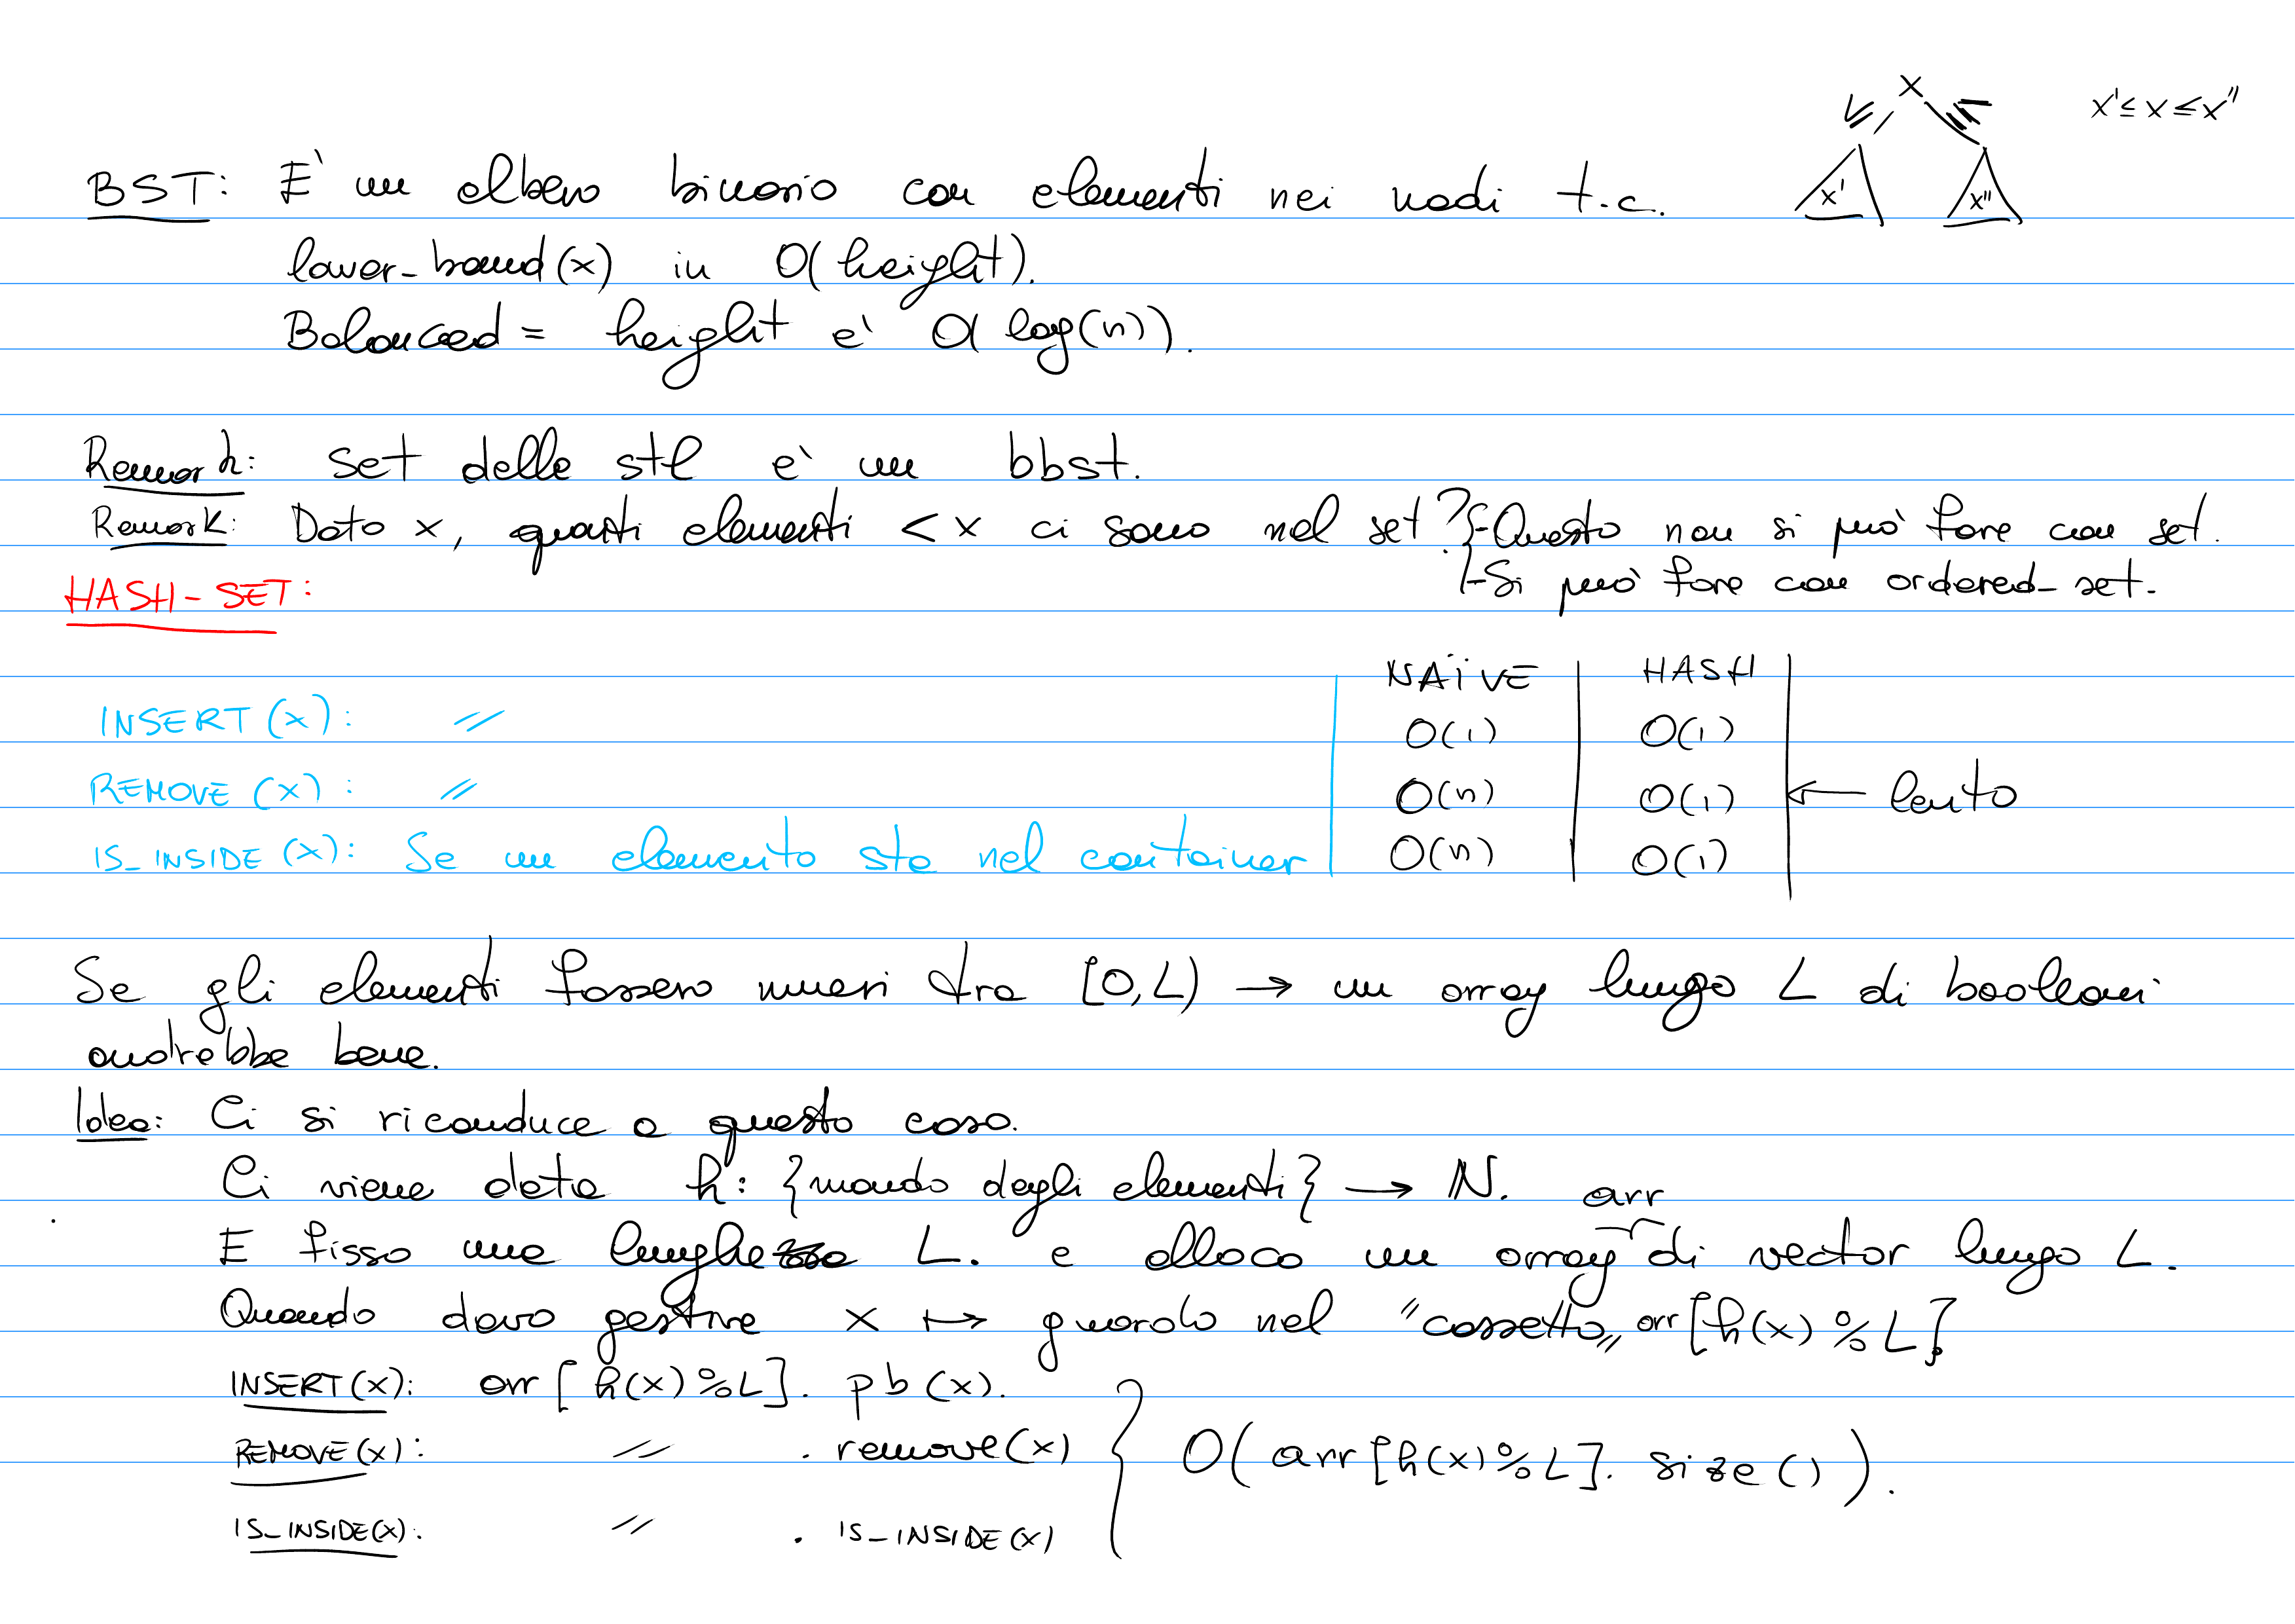 x
x' ≤ x ≤ x"
x' x"
BST: E' un albero binario con elementi nei nodi t.c.
lower_bound(x) in O(height).
Balanced = height e' O(log(n)).
Remark: set delle stl e' un bbst.
Remark: Dato x, quanti elementi < x ci sono nel set? { - Questo non si può fare con set.
- Si può fare con ordered_set.
HASH-SET:
NAÏVE | HASH
INSERT(x): // | O(1) | O(1)
REMOVE(x): // | O(n) | O(1) ← lento
IS_INSIDE(x): Se un elemento sta nel container | O(n) | O(1)
Se gli elementi fossero numeri tra [0,L) → un array lungo L di booleani
andrebbe bene.
Idea: Ci si riconduce a questo caso.
Ci viene data h: {mondo degli elementi} → N.
arr
E fisso una lunghezza L. e alloco un array di vector lungo L.
Quando devo gestire x ↦ guardo nel "cassetto" arr[h(x)%L].
INSERT(x): arr[h(x)%L]. pb(x).
REMOVE(x): // . remove(x) } O(arr[h(x)%L]. size()).
IS_INSIDE(x): // . IS_INSIDE(x)